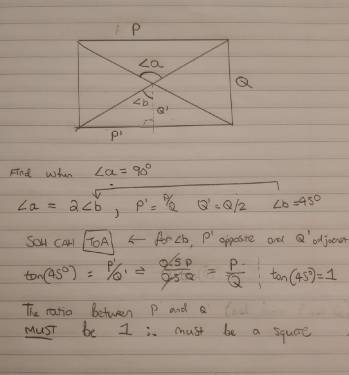 P
∠a
Q
∠b
Q'
P'
Find when ∠a = 90°
∠a = 2∠b , P' = P/Q Q' = Q/2 ∠b = 45°
SOH CAH TOA ← for ∠b, P' opposite and Q' adjacent
tan(45°) = P'/Q' = 0.5P/0.5Q = P/Q tan(45°) = 1
The ratio between P and Q
MUST be 1 ∴ must be a square